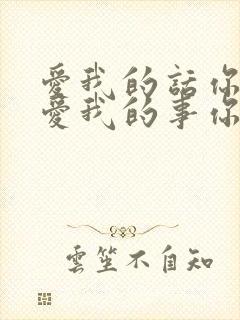 愛我的話你
愛我的事你
雲笙不自知